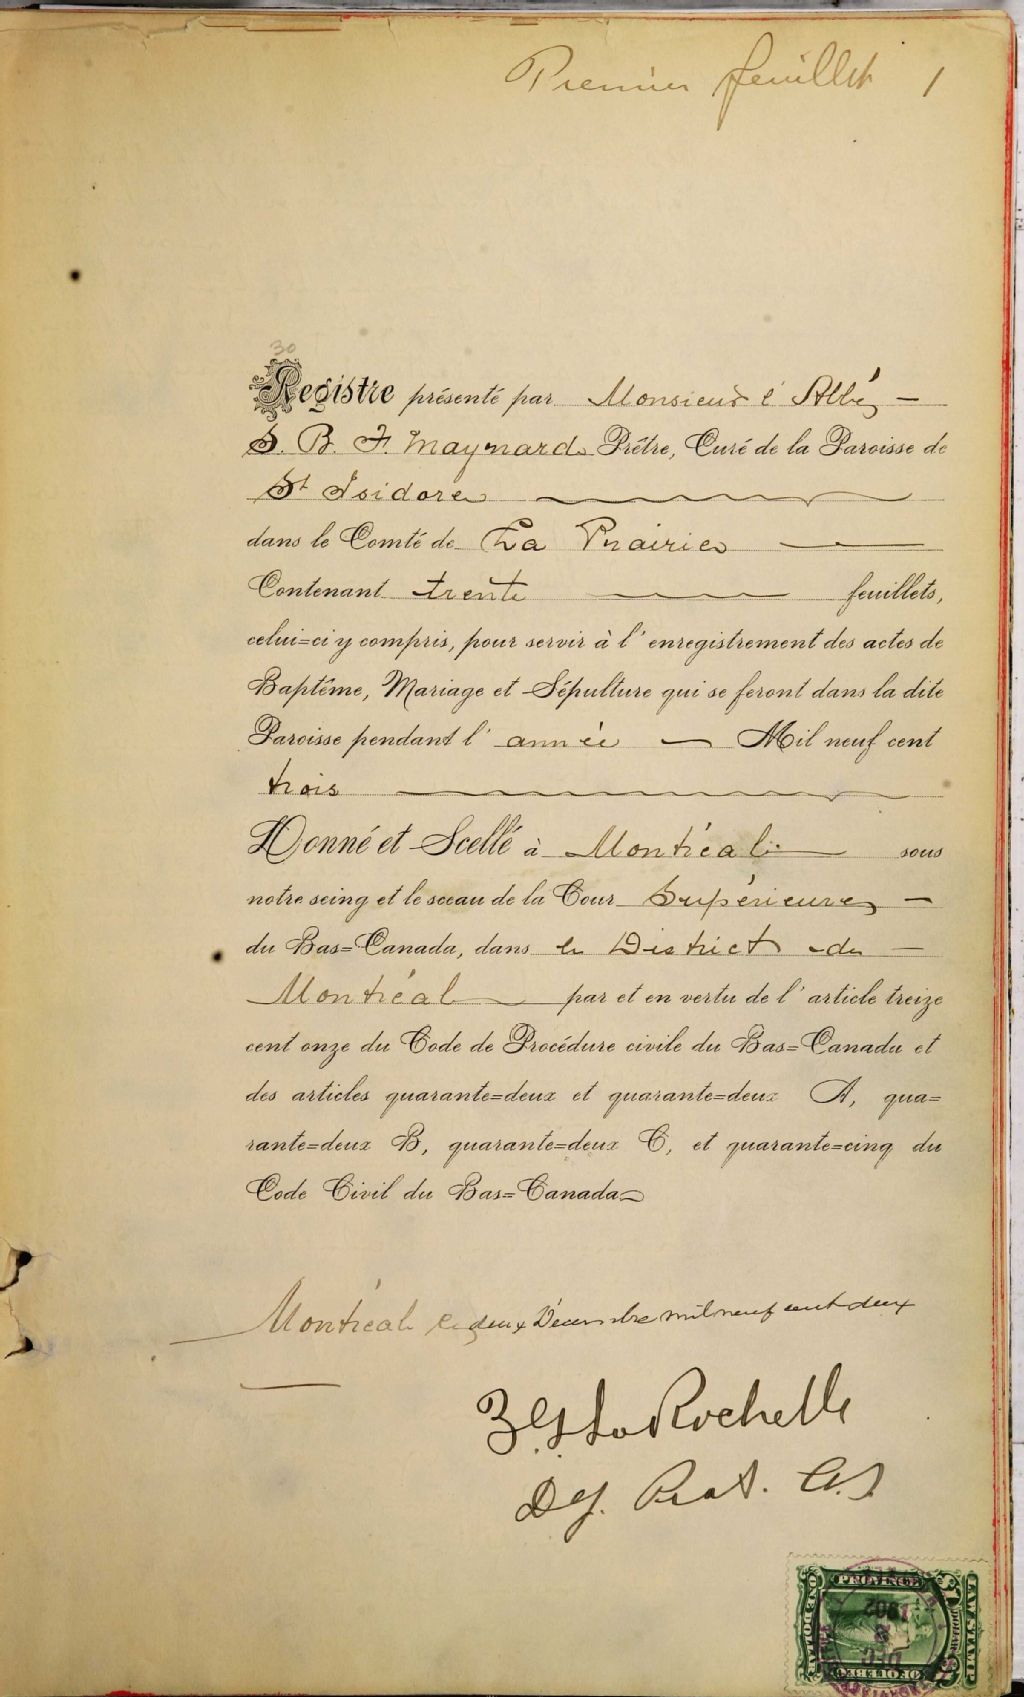 Premier feuillet 1
30
Registre présenté par Monsieur l'Abbé
S. B. F. Maynard Prêtre, Curé de la Paroisse de
St Isidore
dans le Comté de La Prairie
Contenant trente feuillets,
celui=ci y compris, pour servir à l'enregistrement des actes de
Baptême, Mariage et Sépulture qui se feront dans la dite
Paroisse pendant l'année Mil neuf cent
trois
Donné et Scellé à Montréal sous
notre seing et le sceau de la Cour Supérieure
du Bas=Canada, dans le District de
Montréal par et en vertu de l'article treize
cent onze du Code de Procédure civile du Bas=Canada et
des articles quarante=deux et quarante=deux A, qua=
rante=deux B, quarante=deux C, et quarante=cinq du
Code Civil du Bas=Canada
Montréal le deux Décembre mil neuf cent deux
LaRochelle
Dy. Prot. C.S.
LAW STAMP
PROVINCE
OF QUEBEC
ONE DOLLAR
DOLLAR
DEC
1902